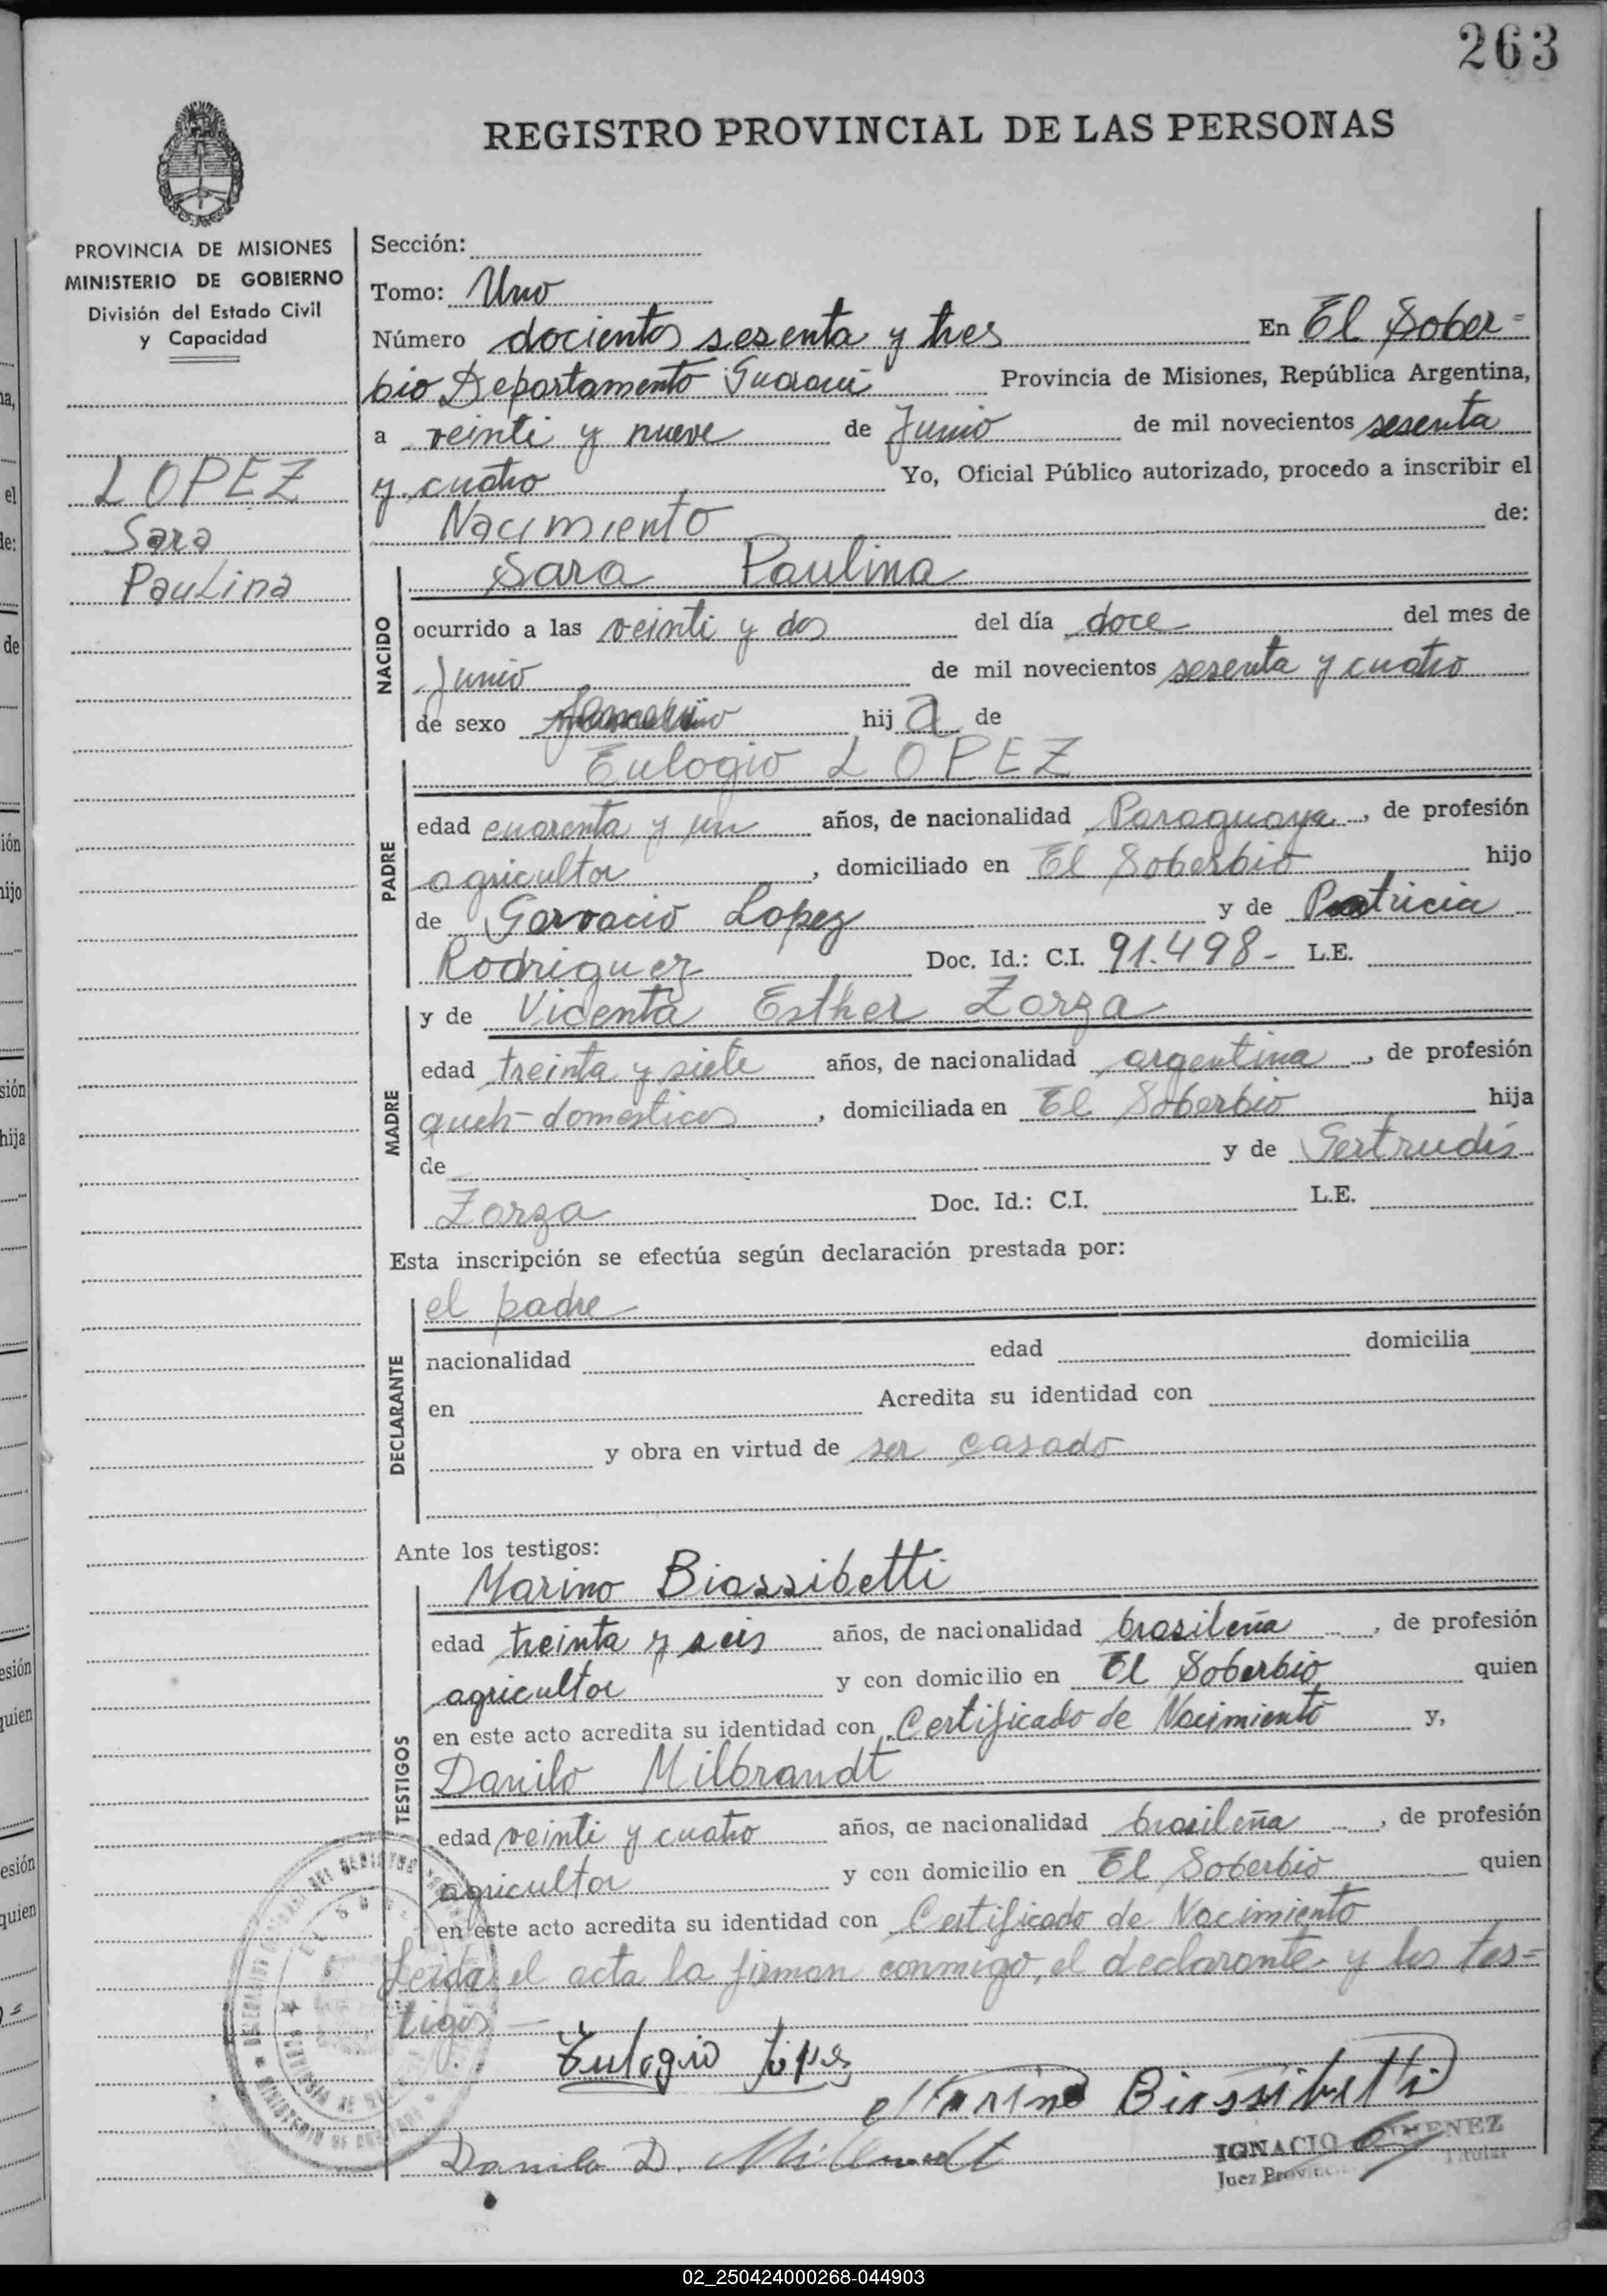 263
REGISTRO PROVINCIAL DE LAS PERSONAS
PROVINCIA DE MISIONES
MINISTERIO DE GOBIERNO
División del Estado Civil
y Capacidad
LOPEZ
Sara
Paulina
Sección:
Tomo: Uno
Número docientos sesenta y tres En El Sober=
bio Departamento Guarani Provincia de Misiones, República Argentina,
a veinti y nueve de Junio de mil novecientos sesenta
y cuatro Yo, Oficial Público autorizado, procedo a inscribir el
Nacimiento de:
NACIDO
Sara Paulina
ocurrido a las veinti y dos del día doce del mes de
Junio de mil novecientos sesenta y cuatro
de sexo hija de
PADRE
Eulogio LOPEZ
edad cuarenta y un años, de nacionalidad Paraguaya, de profesión
agricultor, domiciliado en El Soberbio hijo
de Garvacio Lopez y de Patricia
Rodriguez Doc. Id.: C.I. 91.498- L.E.
MADRE
y de Vicenta Esther Zorza
edad treinta y siete años, de nacionalidad argentina, de profesión
queh-domesticos, domiciliada en El Soberbio hija
de y de Gertrudis
Zorza Doc. Id.: C.I. L.E.
Esta inscripción se efectúa según declaración prestada por:
DECLARANTE
el padre
nacionalidad edad domicilia
en Acredita su identidad con
y obra en virtud de ser casado
Ante los testigos:
TESTIGOS
Marino Biassibetti
edad treinta y seis años, de nacionalidad brasileña, de profesión
agricultor y con domicilio en El Soberbio quien
en este acto acredita su identidad con Certificado de Nacimiento y,
Danilo Milbrandt
edad veinti y cuatro años, de nacionalidad brasileña, de profesión
agricultor y con domicilio en El Soberbio quien
en este acto acredita su identidad con Certificado de Nacimiento
Leida el acta la firman conmigo, el declarante y los tes=
tigos —
Eulogio Lopes
Marino Biassibetti
Danilo D. Milbrandt
IGNACIO GIMENEZ
Juez Titular
02_250424000268-044903